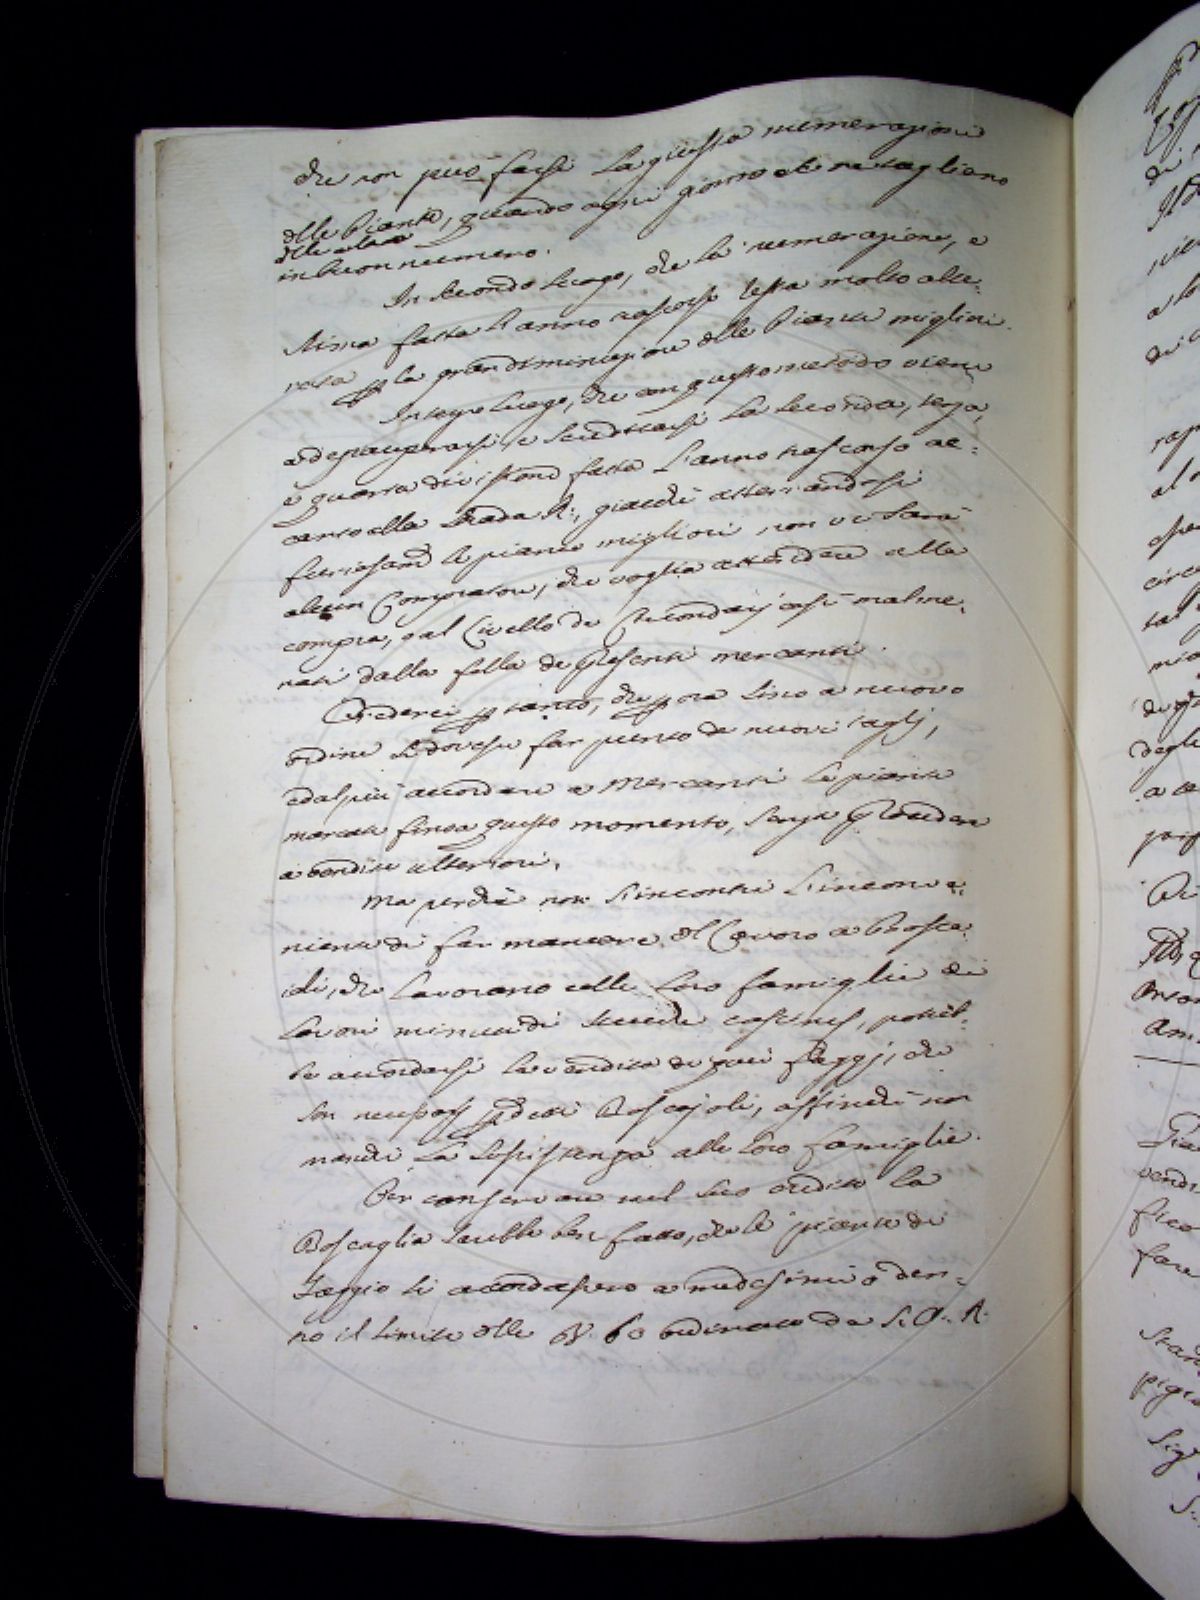 che non può farsi la giusta numerazione
delle Piante, quando ogni giorno se ne tagliano
delle altre
in buon numero.
In secondo luogo, che la numerazione, e
stima fatta l'anno trascorso resta molto alte:
rata per la gran diminuzione delle Piante migliori.
In terzo luogo, che con questo metodo viene
a depauperarsi, e scredittarsi la seconda, terza,
e quarta divisione fatta l'anno trascorso ac:
canto alla strada R:, giacchè atterrandosi
le piante migliori non vi sarà
alcun Compratore, che voglia attendere alla
compra, o al Livello de Circondarj così malme:
nati dalla folla de presenti mercanti.
Crederei pertanto, che per ora sino a nuovo
ordine si dovesse far punto de nuovi taglj,
ed al più accordare a Mercanti le piante
marcate finora a questo momento, senza procedere
a vendite ulteriori.
Ma perchè non s'incontri l'inconve:
niente di far mancare il Lavoro a Bosca:
joli, che lavorano colle loro famiglie dei
lavori minuti di scuole cascines, potreb:
be accordarsi la vendita de puri faggj, che
son necessarj per detti Boscajoli, affinchè non
manchi la sussistenza alle loro famiglie.
Per conservare nel suo credito la
Boscaglia sarebbe ben fatto, che le piante di
faggio si accordassero a medesimi a den:
tro il limite delle 60 ordinato da S. A. R.